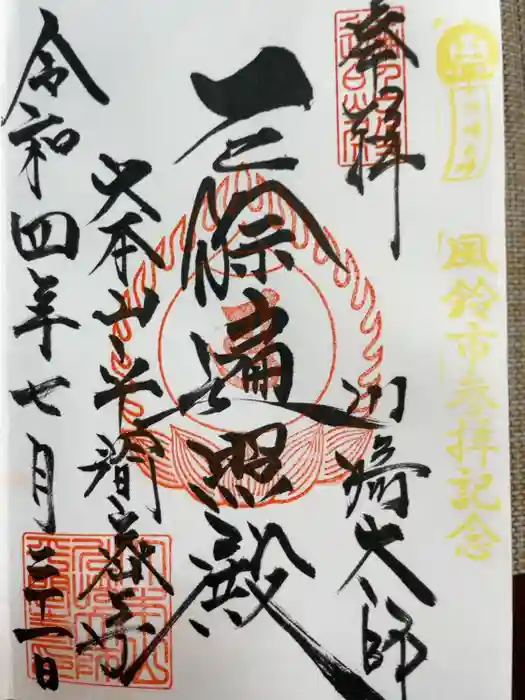 風鈴市参拝記念
奉拝
川崎大師
厄除遍照殿
大本山平間寺
令和四年七月二十一日